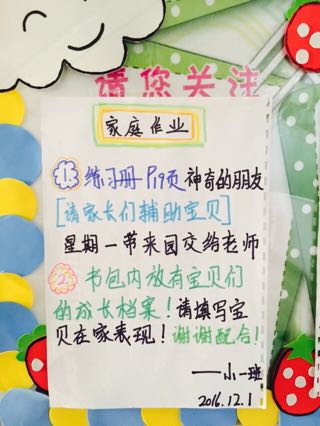 请您关注
家庭作业
1. 练习册P19页神奇的朋友
[请家长们辅助宝贝]
星期一带来园交给老师
2. 书包内放有宝贝们
的成长档案！请填写宝
贝在家表现！谢谢配合！
——小一班
2016.12.1